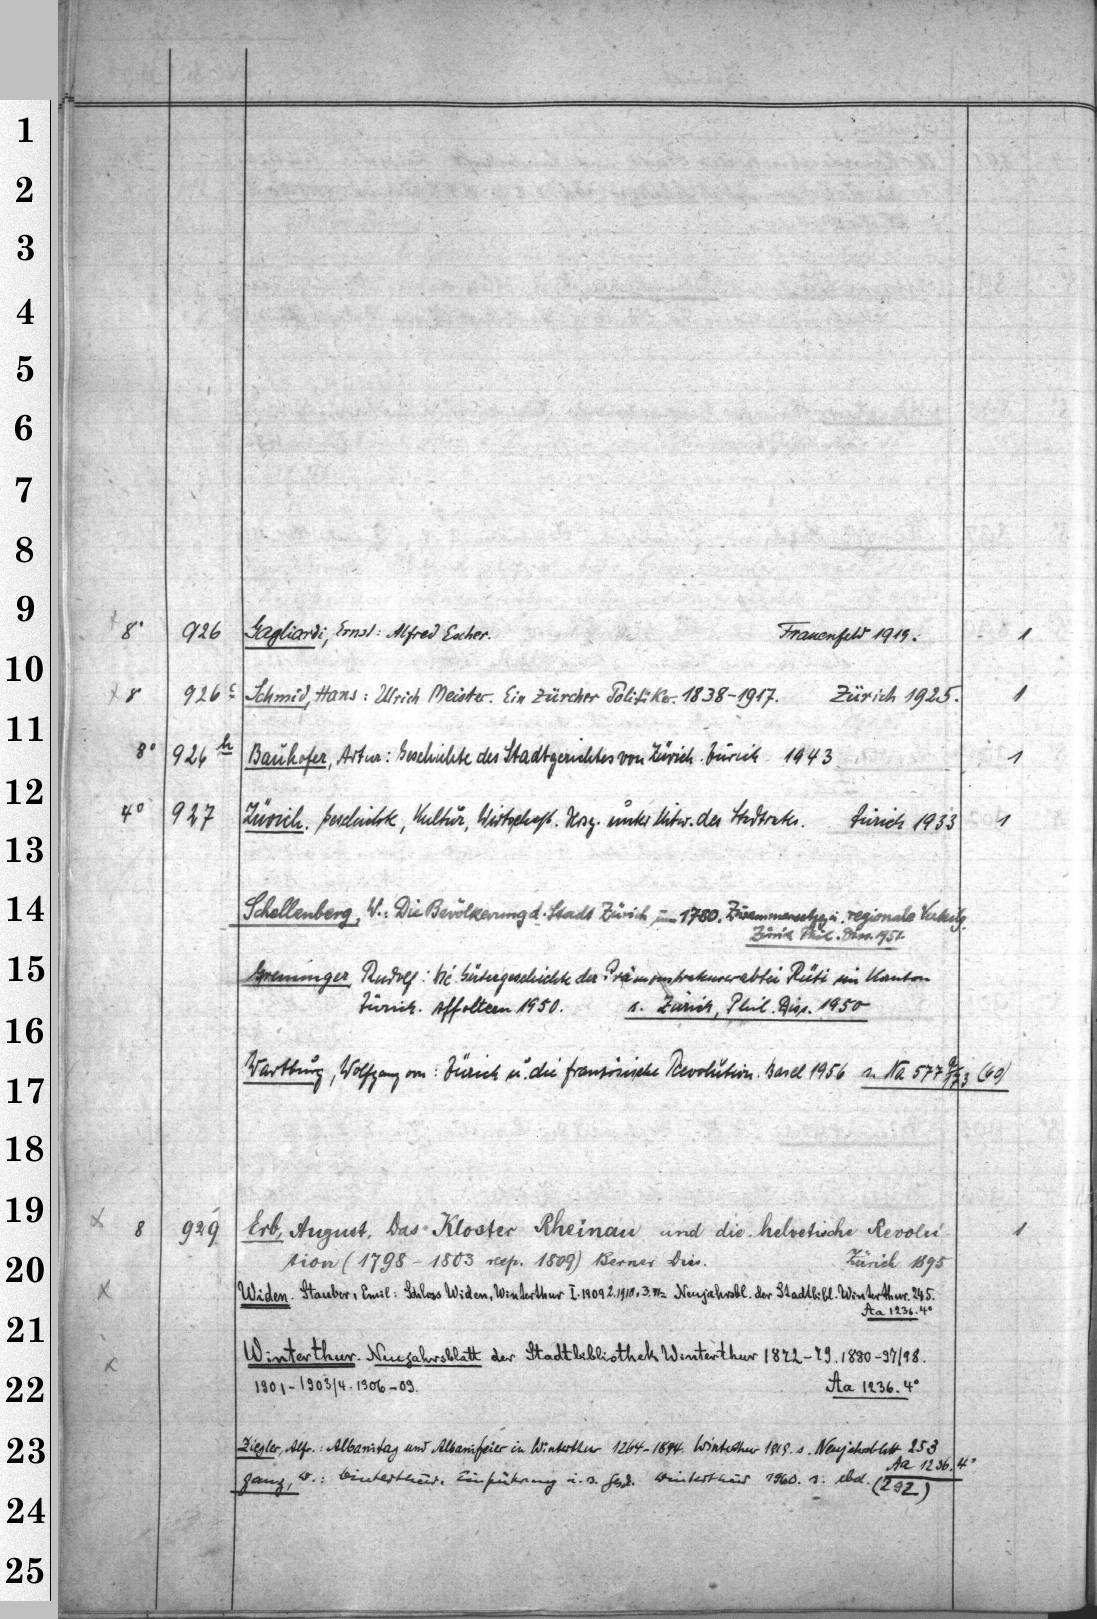 1
2
3
4
5
6
7
8
9
8° 926 Gagliardi, Ernst: Alfred Escher. Frauenfeld 1919. 1
10
8 926 c Schmid, Hans: Ulrich Meister. Ein Zürcher Politiker. 1838-1917. Zürich 1925. 1
11
8° 926 h Bauhofer, Artur: Geschichte des Stadtgerichtes von Zürich. Zürich 1943 1
12
4° 927 Zürich. Geschichte, Kultur, Wirtschaft. Hrsg. unter Mitw. des Stadtrates. Zürich 1933 1
13
14
Schellenberg, W.: Die Bevölkerung d. Stadt Zürich um 1780. Zusammensetzg u. regionale Verteilg.
Zürich Phil. Diss. 1951.
15
Greminger, Rudolf: Die Gütergeschichte der Prämonstratenserabtei Rüti im Kanton
Zürich. Affoltern 1950. s. Zürich, Phil. Diss. 1950
16
Wartburg, Wolfgang von: Zürich u. die französische Revolution. Basel 1956 s. Na 577 (60)
17
18
19
8 929 Erb, August. Das Kloster Rheinau und die helvetische Revolu
tion (1798 - 1803 resp. 1809) Berner Diss. Zürich 1895 1
20
Widen. Stauber, Emil: Schloss Widen, Winterthur I. 1909 2. 1910, 3. Neujahrsbl. der Stadtbibl. Winterthur. 245.
Aa 1236. 4°
21
Winterthur. Neujahrsblatt der Stadtbibliothek Winterthur 1872-79. 1880-97/98.
22
1901-1903/4. 1906-09. Aa 1236. 4°
23
Ziegler, Alfr.: Albanitag und Albanifeier in Winterthur 1264-1874. Winterthur 1919. s. Neujahrsblatt 253
Aa 1236. 4°
Ganz, W.: Winterthur. Einführung i. s. Gesch. Winterthur 1960. s. ebd. (292)
24
25